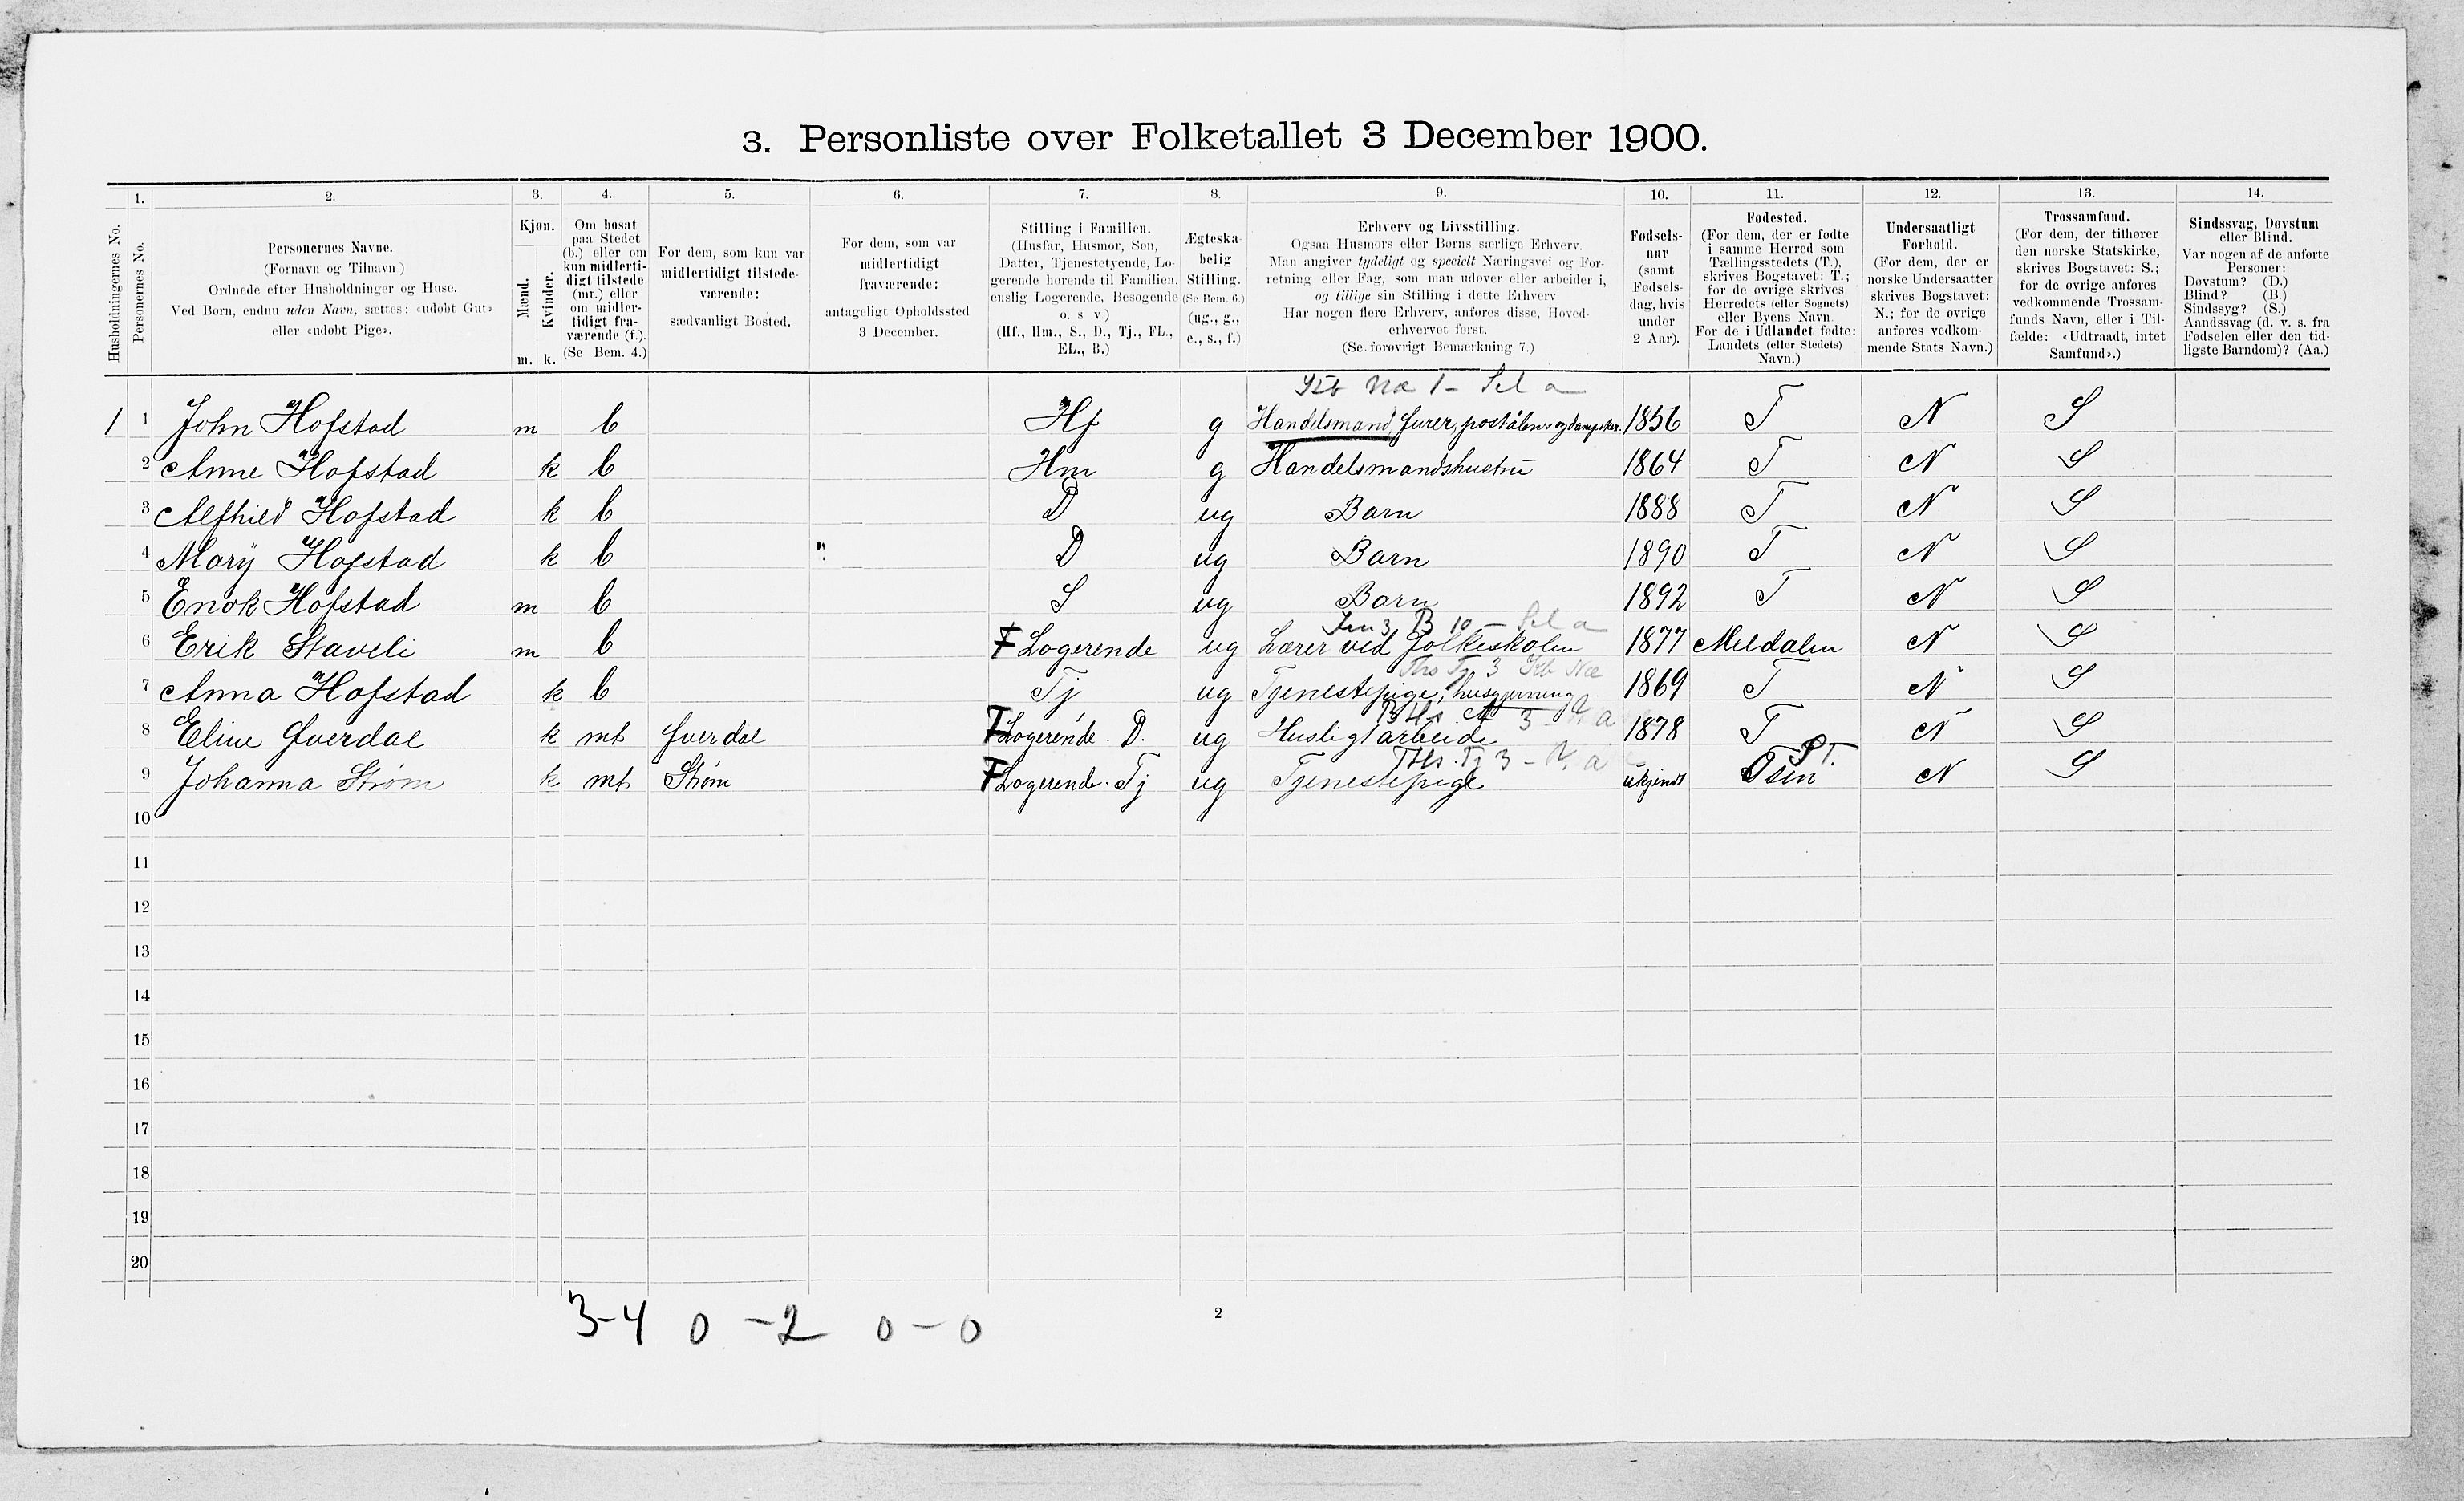 3. Personliste over Folketallet 3 December 1900.
1. 2. 3. 4. 5. 6. 7. 8. 9. 10. 11. 12. 13. 14.
Husholdningernes No.
Personernes No.
Personernes Navne.
(Fornavn og Tilnavn)
Ordnede efter Husholdninger og Huse.
Ved Børn, endnu uden Navn, sættes: «udøbt Gut»
eller «udøbt Pige».
Kjøn.
Mænd.
Kvinder.
m. k.
Om bosat
paa Stedet
(b.) eller om
kun midlerti-
digt tilstede
(mt.) eller
om midler-
tidigt fra-
værende (f.).
(Se Bem. 4.)
For dem, som kun var
midlertidigt tilstede-
værende:
sædvanligt Bosted.
For dem, som var
midlertidigt
fraværende:
antageligt Opholdssted
3 December.
Stilling i Familien.
(Husfar, Husmor, Søn,
Datter, Tjenestetyende, Lo-
gerende hørende til Familien,
enslig Logerende, Besøgende
o. s v.)
(Hf., Hm., S., D., Tj., FL.,
EL., B.)
Ægteska-
belig
Stilling.
(Se Bem. 6.)
(ug., g.,
e., s., f.)
Erhverv og Livsstilling.
Ogsaa Husmors eller Børns særlige Erhverv.
Man angiver tydeligt og specielt Næringsvei og For-
retning eller Fag, som man udøver eller arbeider i,
og tillige sin Stilling i dette Erhverv.
Har nogen flere Erhverv, anføres disse, Hoved-
erhvervet først.
(Se forøvrigt Bemærkning 7.)
Fødsels-
aar
(samt
Fødsels-
dag, hvis
under
2 Aar).
Fødested.
(For dem, der er fødte
i samme Herred som
Tællingsstedets (T.),
skrives Bogstavet: T.;
for de øvrige skrives
Herredets (eller Sognets)
eller Byens Navn.
For de i Udlandet fødte:
Landets (eller Stedets)
Navn.)
Undersaatligt
Forhold.
(For dem, der er
norske Undersaatter
skrives Bogstavet:
N.; for de øvrige
anføres vedkom-
mende Stats Navn.)
Trossamfund.
(For dem, der tilhører
den norske Statskirke,
skrives Bogstavet: S.;
for de øvrige anføres
vedkommende Trossam-
funds Navn, eller i Til-
fælde: «Udtraadt, intet
Samfund».)
Sindssvag, Døvstum
eller Blind.
Var nogen af de anførte
Personer:
Døvstum? (D.)
Blind? (B.)
Sindssyg? (S.)
Aandssvag (d. v. s. fra
Fødselen eller den tid-
ligste Barndom)? (Aa.)
1 1 John Hofstad m b Hf g Handelsmand, furer, 1856 T N S
2 Anne Hofstad k b Hm g Handelsmandshustru 1864 T N S
3 Alfhild Hofstad k b D ug Barn 1888 T N S
4 Mary Hofstad k b D ug Barn 1890 T N S
5 Enok Hofstad m b S ug Barn 1892 T N S
6 Erik Staveli m b F Logerende ug Lærer ved folkeskolen 1877 Meldalen N S
7 Anna Hofstad k b Tj ug Tjenestepige, husgjerning 1869 T N S
8 Eline Hverdal k mt Hverdal F Logerende. D. ug Husligt arbeide 1878 T N S
9 Johanna Strøm k mt Strøm F Logerende. Tj ug Tjenestepige ukjendt Osen ST. N S
10
11
12
13
14
15
16
17
18
19
20
3-4 0-2 0-0
2